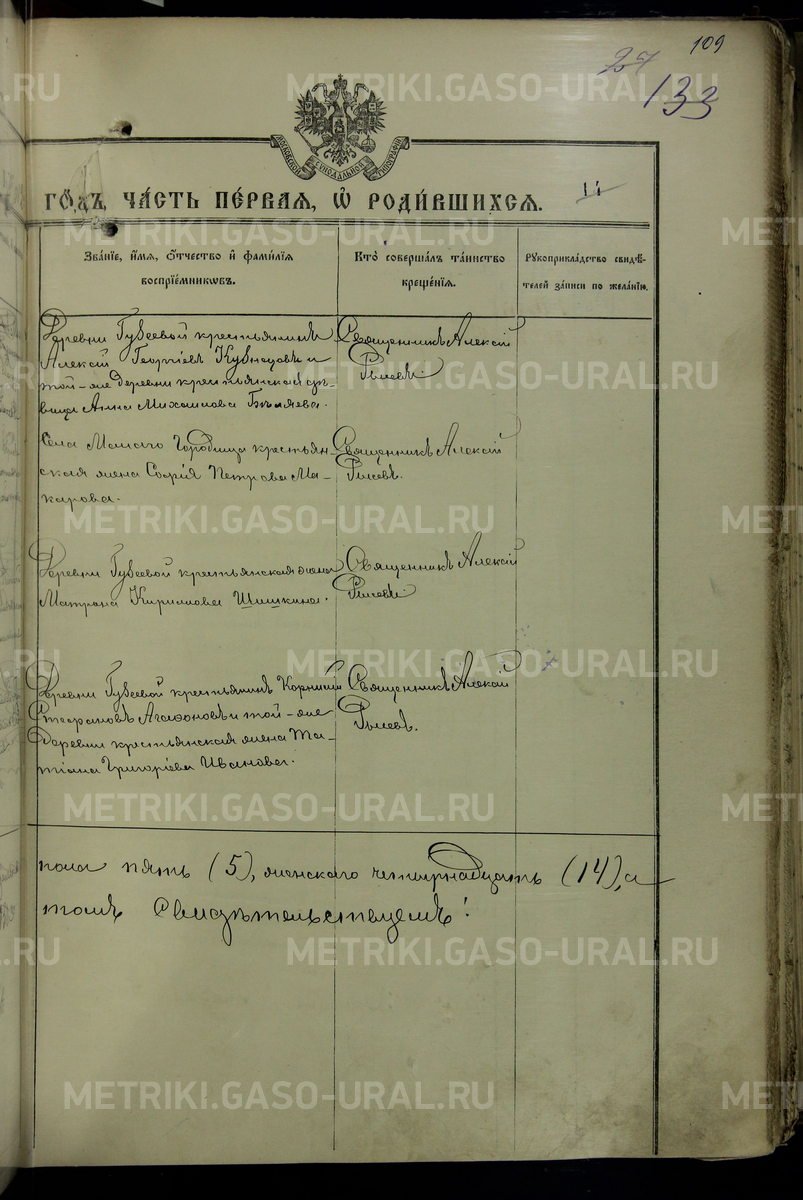 109
27
133
МОСКОВСКОЙ СѴНОДАЛЬНОЙ ТИПОГРАФІИ
ГОДЪ, ЧАСТЬ ПЕРВАЯ, Ѿ РОДИВШИХСЯ. 14
Званіе, имя, отчество и фамилія воспріемниковъ.
Кто совершалъ таинство крещенія.
Рукоприкладство свидѣтелей записи по желанію.
Деревни Губеевой крестьянинъ
Алексій Георгіевъ Кузнецовъ и
той-же деревни крестьянская дѣ-
вица Анна Михаилова Бѣляева.
Священникъ Алексій
Рычевъ.
Села Малаго Городища крестьян-
ская жена Софія Петрова Ма-
карова.
Священникъ Алексій
Рычевъ.
Деревни Губеевой крестьянская жена
Матрона Кирилова Шишкина.
Священникъ Алексій
Рычевъ.
Деревни Губеевой крестьянинъ Корнилій
Стефановъ Агафоновъ и той-же
деревни крестьянская жена Та-
тіана Григоріева Иванова.
Священникъ Алексій
Рычевъ.
пола пять (5), женскаго четырнадцать (14), а
томъ свидѣтельствуемъ:
METRIKI.GASO-URAL.RU